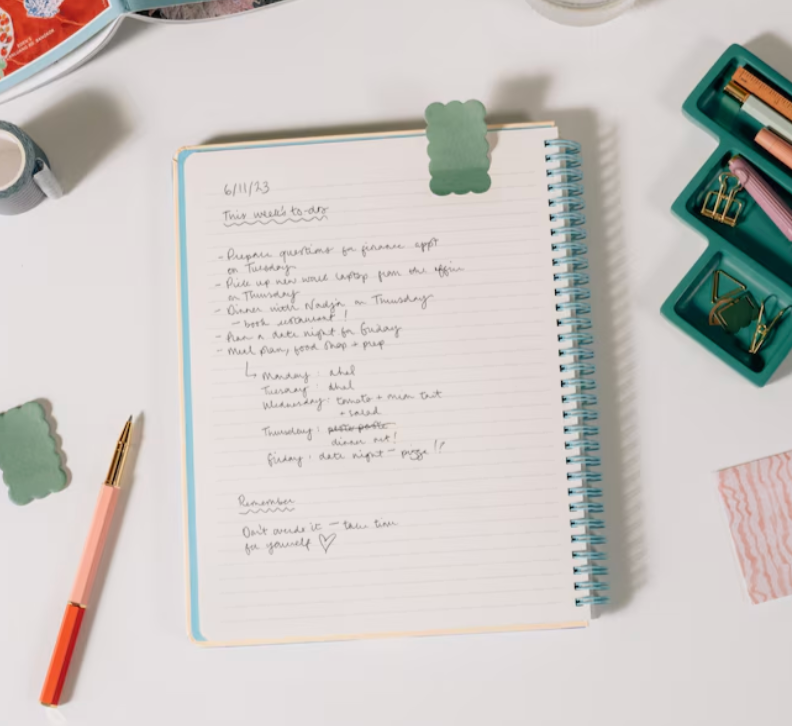 6/11/23
This week's to-dos
- Prepare questions for finance appt
on Tuesday
- Pick up new work laptop from the office
on Thursday
- Dinner with Nadja on Thursday
- book restaurant!
- Plan a date night for Friday
- Meal plan, food shop + prep
↳ Monday: dhal
Tuesday: dhal
Wednesday: tomato + tart
+ salad
Thursday: pesto pasta
dinner out!
Friday: date night - pizza!?
Remember
Don't overdo it - take time
for yourself ♡